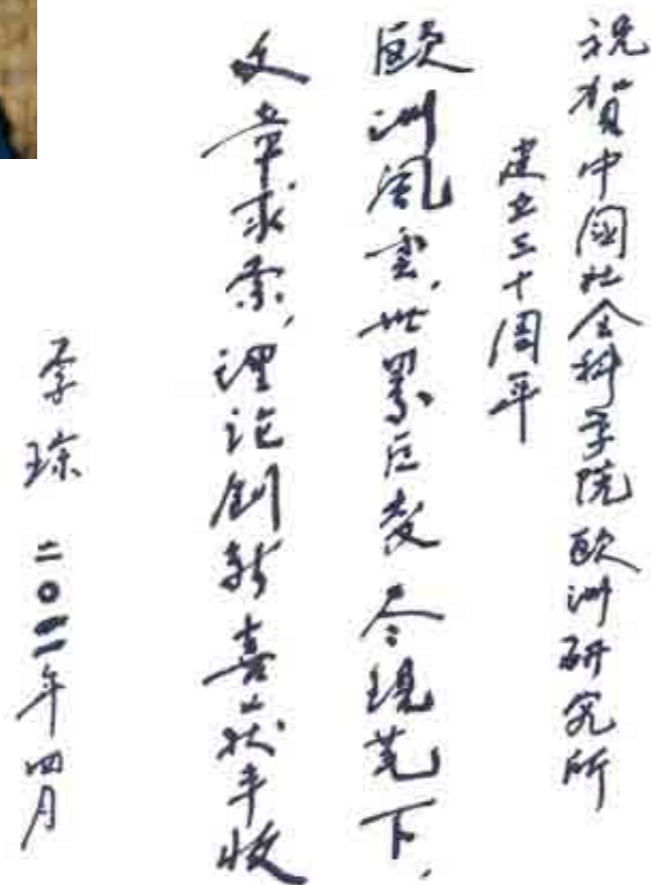 祝賀中國社会科学院欧洲研究所
建立三十周年
欧洲風雲,世界巨变尽現笔下,
文章求索,理论創新喜获丰收
李琮 二〇一一年四月